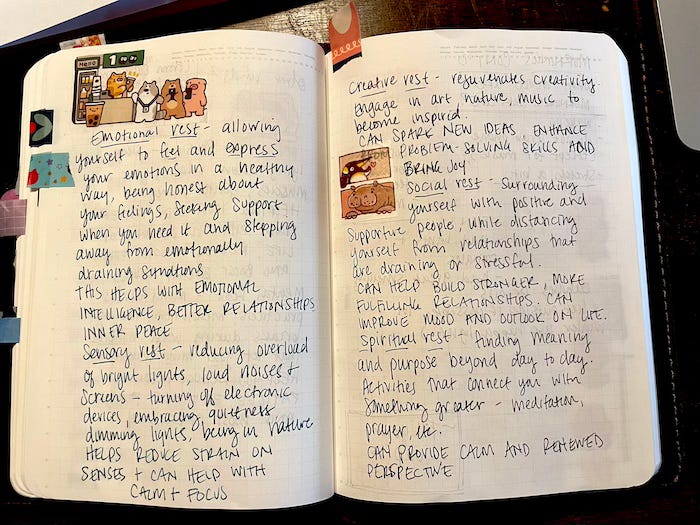 MENU
1
Emotional rest - allowing
yourself to feel and express
your emotions in a healthy
way, being honest about
your feelings, seeking support
when you need it and stepping
away from emotionally
draining syndtions
THIS HELPS WITH EMOTIONAL
INTELLIGENCE, BETTER RELATIONSHIPS,
INNER PEACE
Sensory rest - reducing overload
of bright lights, loud noises +
screens - turning of electronic
devices, embracing quietness
dimming lights, being in nature
HELPS REDUCE STRAIN ON
SENSES + CAN HELP WITH
CALM + FOCUS
Creative rest - rejuvenates creativity.
Engage in art, nature, music to
become inspired.
CAN SPARK NEW IDEAS ENHANCE
PROBLEM-SOLVING SKILLS AND
BRING JOY
Social rest - surrounding
yourself with positive and
supportive people, while distancing
yourself from relationships that
are draining or stressful.
CAN HELP BUILD STRONGER, MORE
FULFILLING RELATIONSHIPS. CAN
IMPROVE MOOD AND OUTLOOK ON LIFE.
Spiritual rest - finding meaning
and purpose beyond day to day.
Activities that connect you with
something greater - meditation,
prayer, etc.
CAN PROVIDE CALM AND RENEWED
PERSPECTIVE